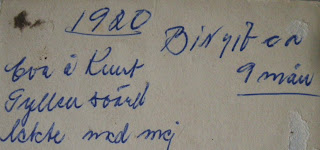 1920
Birgit ca
9 mån
Eva å Kurt
Gyllensvärd
lekte med mej